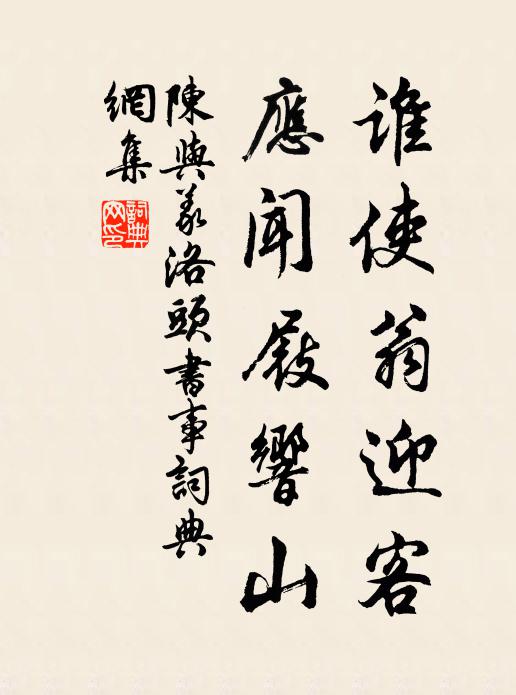 誰使翁迎客
應聞屐響山
陳與義洛頭書事詞典
網集
詞典網印